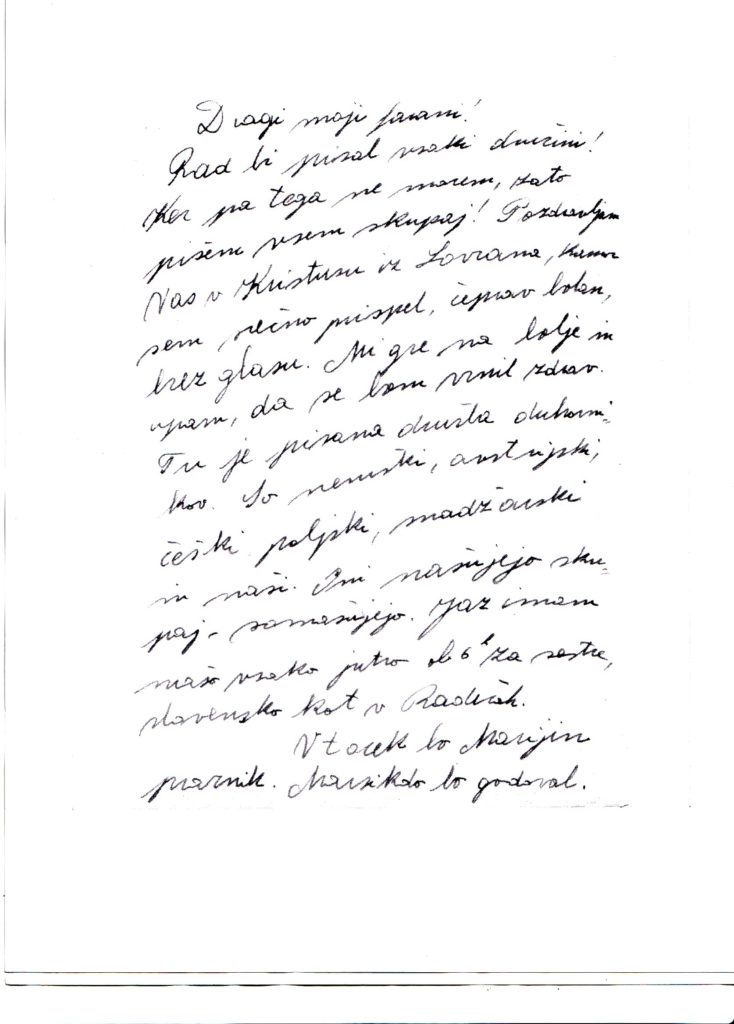 Dragi moji farani!
Rad bi pisal vsaki družini!
Ker pa tega ne morem, zato
pišem vsem skupaj! Pozdravljam
Vas v Kristusu iz Lovrana, kamor
sem srečno prispel, čeprav bolan,
brez glasu. Mi gre na bolje in
upam, da se bom vrnil zdrav.
Tu je pisana družba duhovni-
kov. So nemški, avstrijski,
češki poljski, madžarski
in naši. Oni mašujejo sku-
paj - somašujejo. Jaz imam
mašo vsako jutro ob 6h za sestre,
slovensko kot v Radečah.
V torek bo Marijin
praznik. Marsikdo bo godoval.